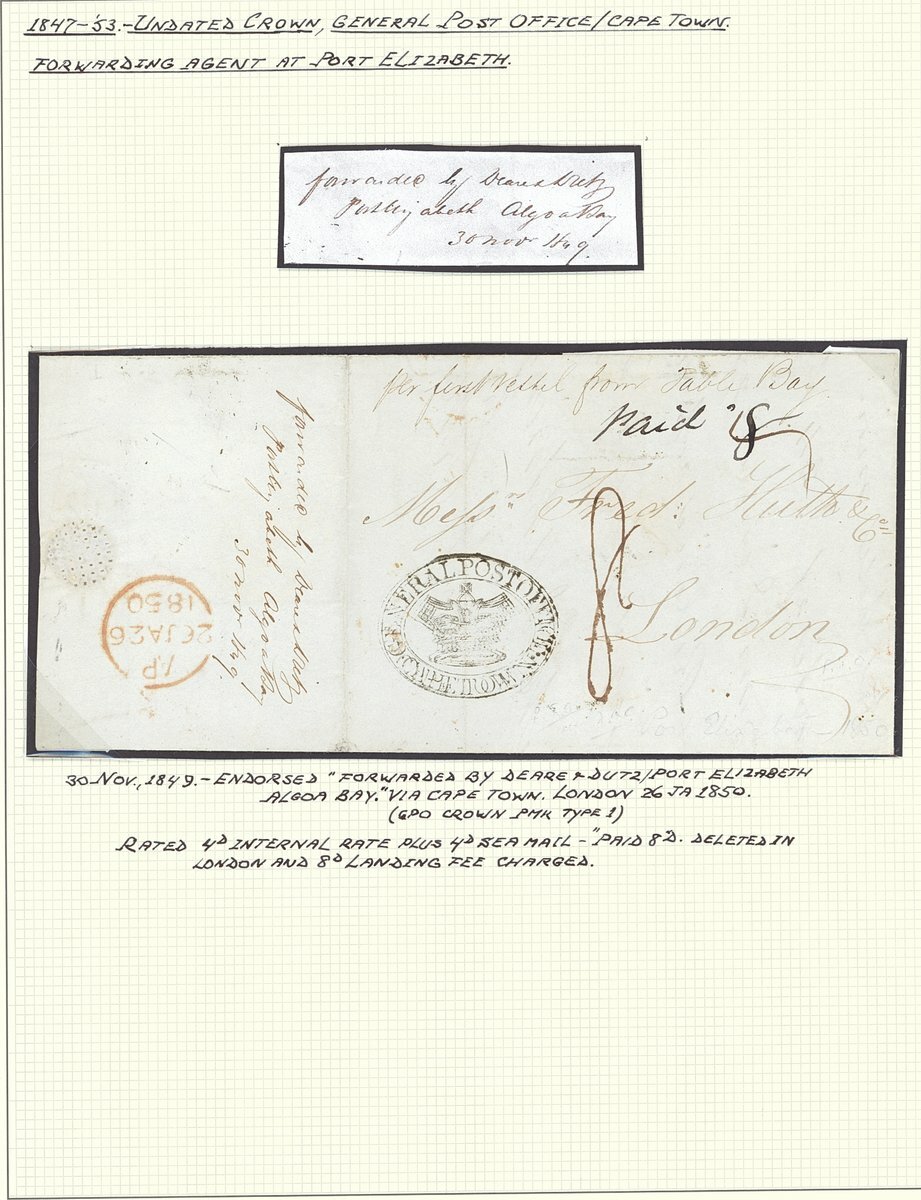 1847-'53.-UNDATED CROWN, GENERAL POST OFFICE/CAPE TOWN.
FORWARDING AGENT AT PORT ELIZABETH.
forwarded by Deare & Dietz
Port Elizabeth Algoa Bay
30 Nov 1849.
per first vessel from Table Bay
Paid 8
Messrs Fred: Huth & Co
London
8
GENERAL POST OFFICE
CAPE TOWN
forwarded by Deare & Dietz
Port Elizabeth Algoa Bay
30 Nov 1849
AP
26JA26
1850
Port Elizabeth - 1850
30 NOV., 1849.- ENDORSED "FORWARDED BY DEARE & DUTZ/PORT ELIZABETH
ALGOA BAY." VIA CAPE TOWN. LONDON 26 JA 1850.
(GPO CROWN PMK TYPE 1)
RATED 4D INTERNAL RATE PLUS 4D SEA MAIL - "PAID 8"D. DELETED IN
LONDON AND 8D LANDING FEE CHARGED.